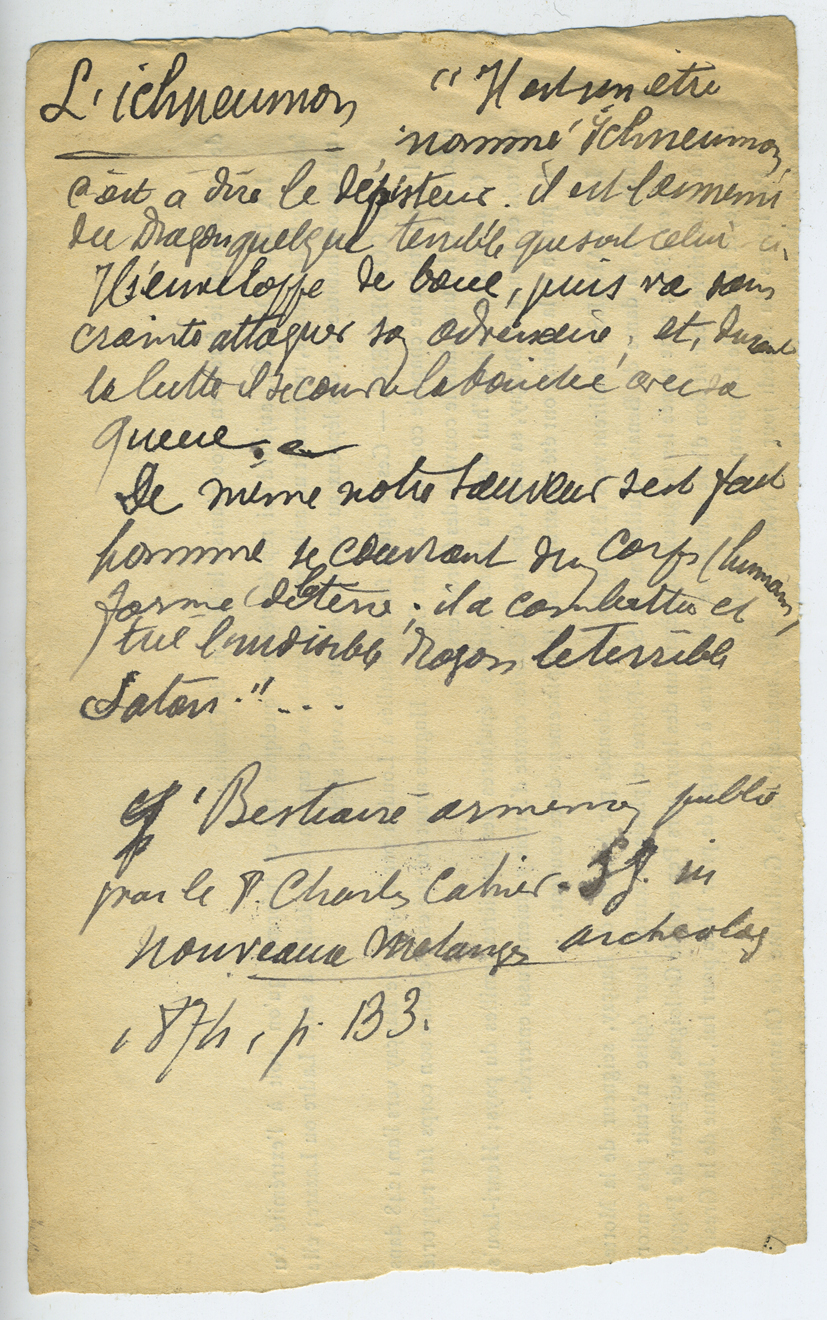 L'ichneumon "Il est un être
nommé Ichneumon,
c'est à dire le dépisteur. il est l'ennemi
du Dragon quelque terrible que soit celui-ci,
Il s'enveloppe de boue, puis va sans
crainte attaquer son adversaire, et, durant
la lutte il se couvre la bouche avec sa
queue.
De même notre Sauveur s'est fait
homme se couvrant du corps (humain,
formé de terre; il a combattu et
tué l'indicible Dragon le terrible
Satan." ...
cf Bestiaire arménien publié
par le P. Charles Cahier. S.J. in
nouveaux Mélanges archéolog
1874, p. 133.